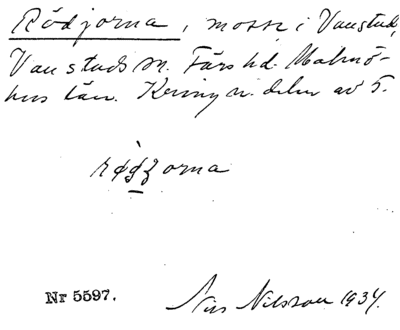 Rödjorna, mosse i Vanstad,
Vanstads sn. Färs hd. Malmö-
hus län. Kring n. delen av S.
rø̀ʒorna
Nr 5597.
Nils Nilsson 1934.